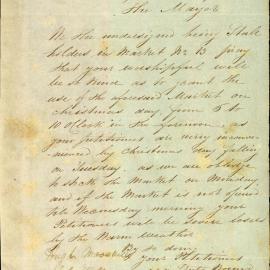 The Mayor
We the undersigned being Stall
holders in Market No 13 pray
that your worshipful will
be so kind as to grant the
use of the aforesaid Market on
Christmas day from 6 to
10 o'Clock in the forenoon, as
your petitioners are very inconve-
nienced by Christmas being falling
on Tuesday, as we are obliged
to stock the Market on Monday
and if the Market is not open
till Wednesday morning your
Petitioners will be severe losers
by the Warm Weather
By so doing
your Petitioners